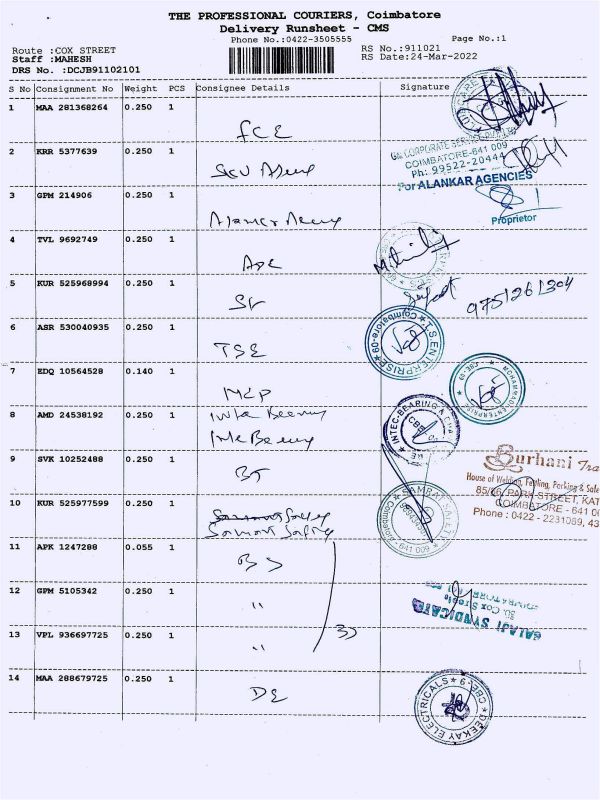 THE PROFESSIONAL COURIERS, Coimbatore
Delivery Runsheet - CMS
Phone No.:0422-3505555
Page No.:1
Route :COX STREET
RS No.:911021
Staff :MAHESH
RS Date:24-Mar-2022
DRS No. :DCJB91102101
S No Consignment No Weight PCS Consignee Details Signature
1 MAA 281368264 0.250 1
FCE
CORPORATE
COIMBATORE-641 009
Ph: 99522-20444
2 KRR 5377639 0.250 1
For ALANKAR AGENCIES
3 GPM 214906 0.250 1
Proprietor
4 TVL 9692749 0.250 1
ADE
5 KUR 525968994 0.250 1
SV
9751261304
6 ASR 530040935 0.250 1
TSE
T.S.ENTERPRISE Coimbatore-09
7 EDQ 10564528 0.140 1
MEP
8 AMD 24538192 0.250 1
INTEC-BEARING &
9 SVK 10252488 0.250 1
BT
Burhani Tra
House of Welding,
85/86, PARK STREET, KAT
COIMBATORE - 641 00
Phone : 0422 - 2231089, 43
10 KUR 525977599 0.250 1
Samrat Safety
SAMRAT SAFETY
Coimbatore - 641 009
11 APK 1247288 0.055 1
BS
12 GPM 5105342 0.250 1
"
BALAJI SYNDICATE
30, Cox Street
13 VPL 936697725 0.250 1
"
14 MAA 288679725 0.250 1
DE
DEEKAY ELECTRICALS CBE-9